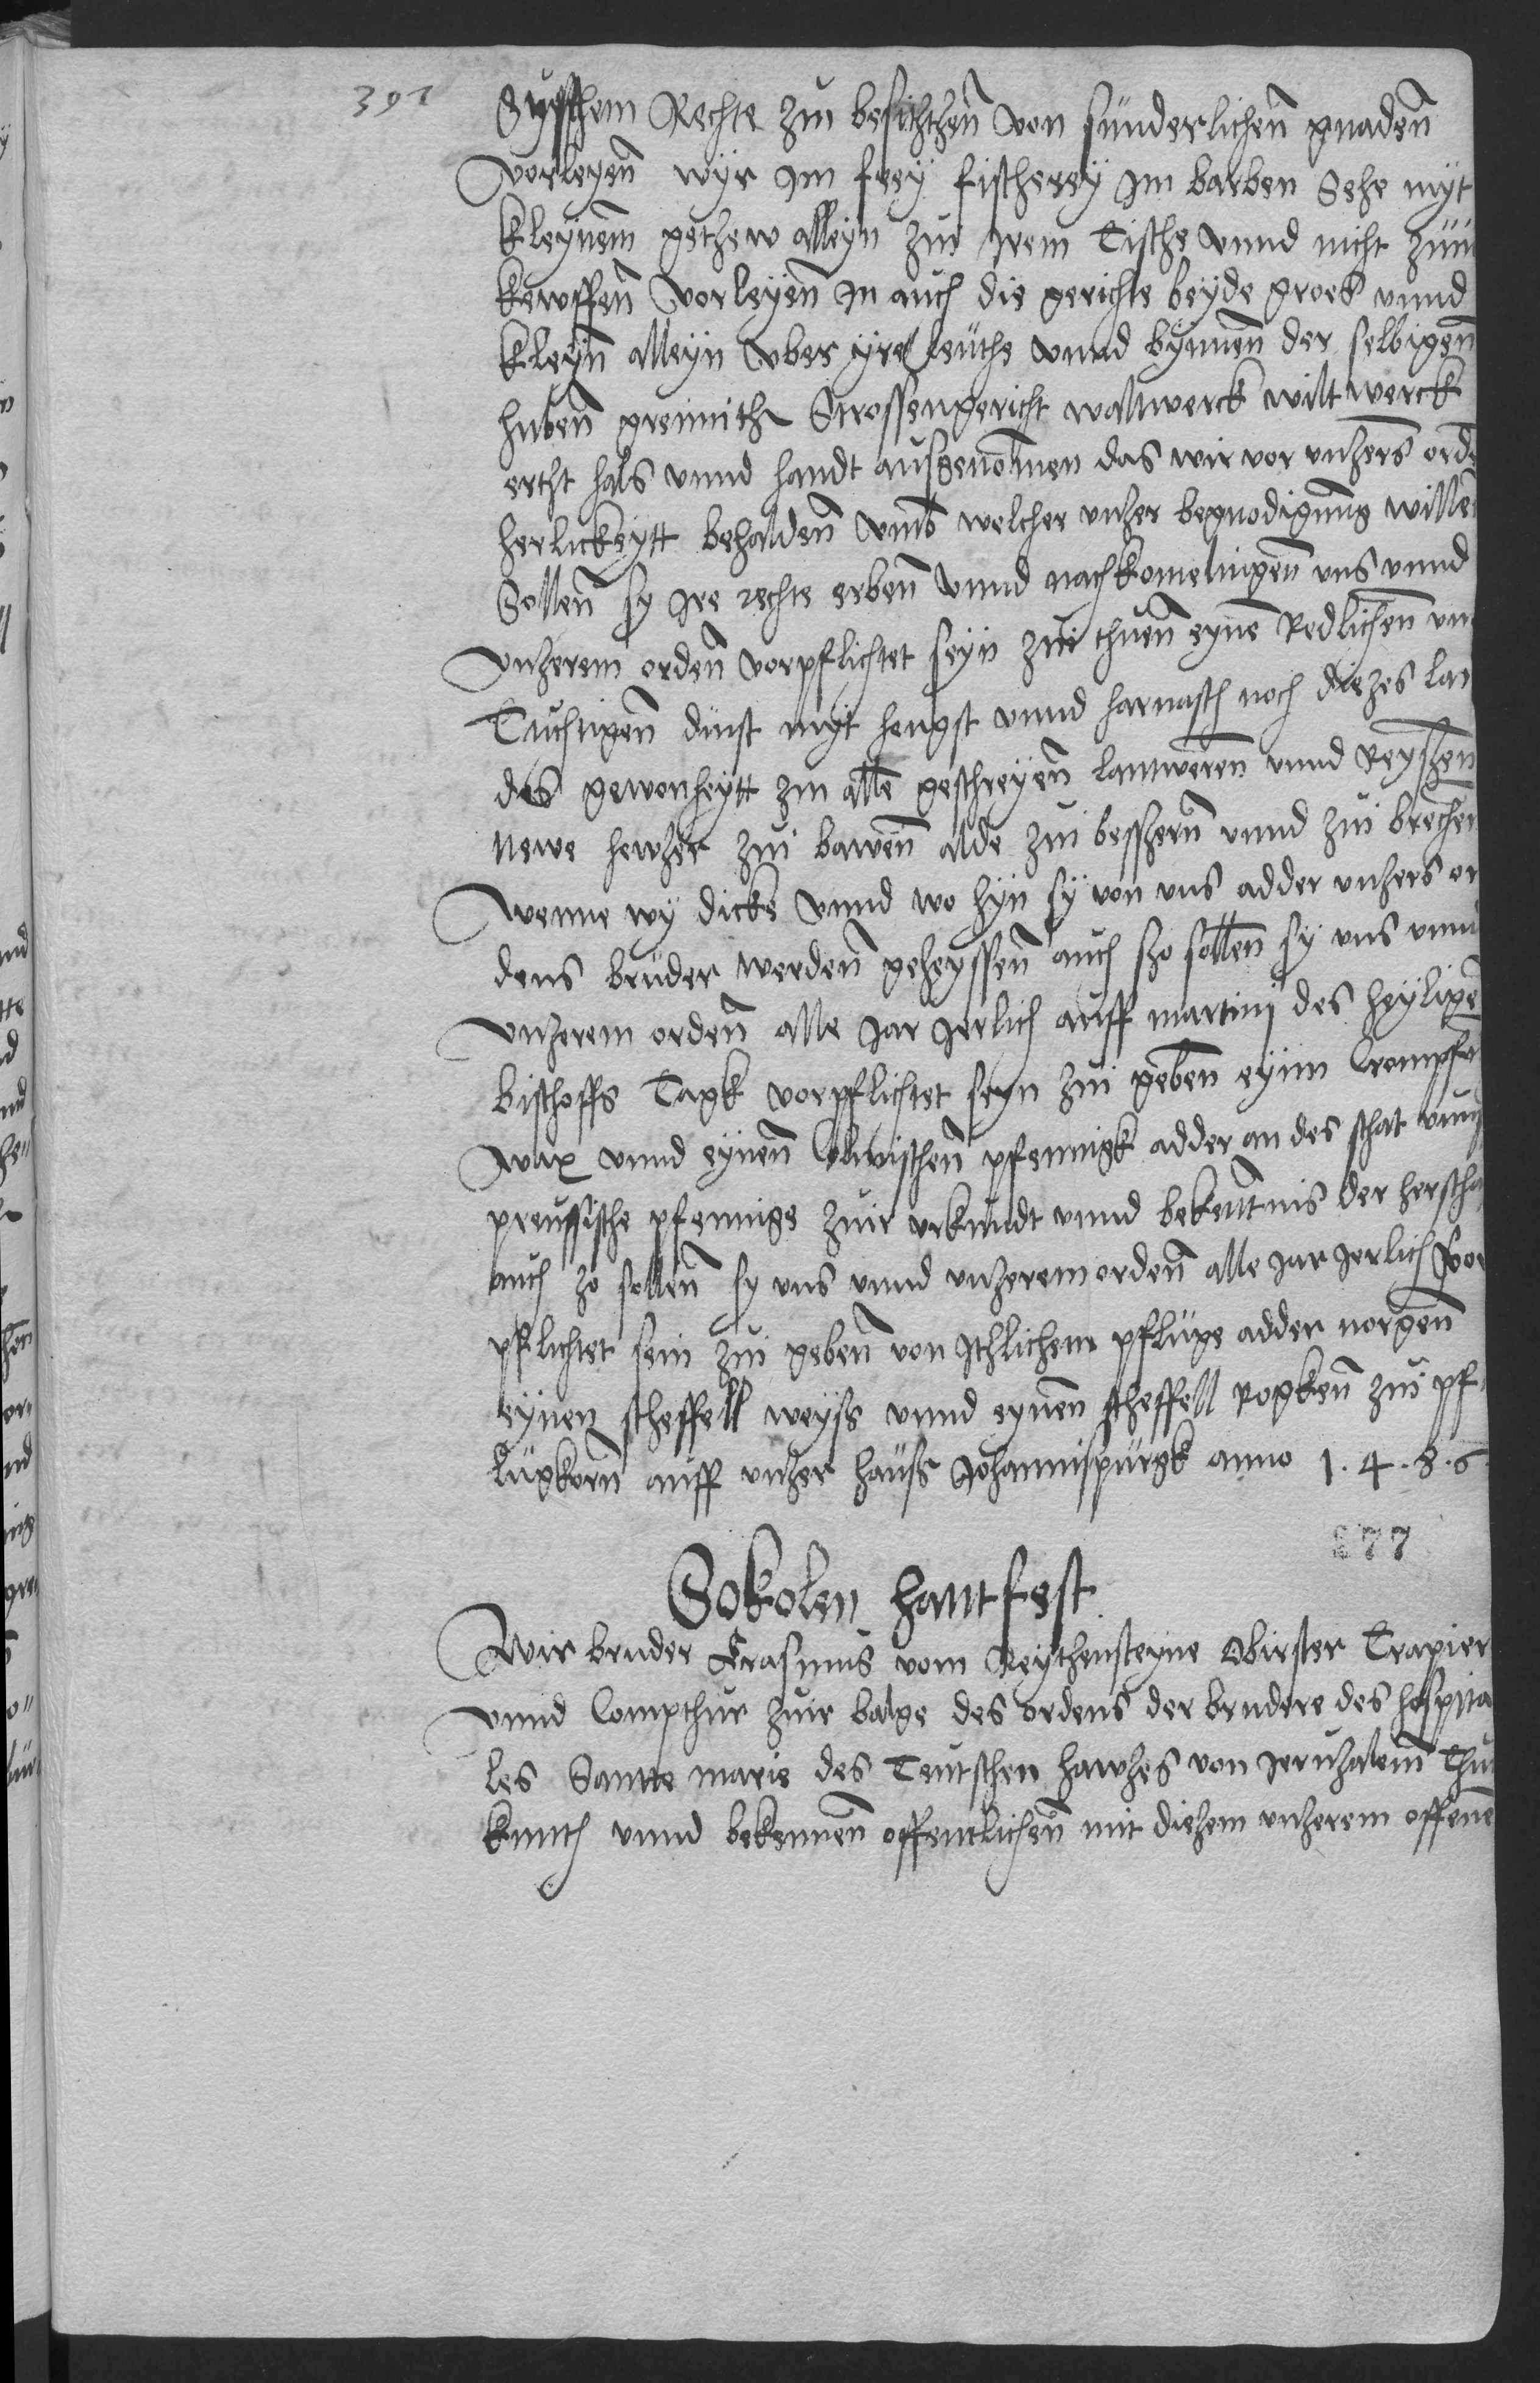 391
Sÿsschem Rechte zcu besichthen̄ von sunderlichen̄ gnaden̄
vorleyen̄ wÿr Im freÿ fischereÿ Im barben Sehe mÿt
kleÿnem gethew alleÿn zcu irem Tische vnnd nicht zcuu
kewffen̄ Vorleÿen̄ In auch die gerichte beÿde groes vnnd
kleÿn alleÿn vber ÿre leuthe vnnd bÿnnen̄ der selbigen̄
huben̄ grenniths Strossengericht waltwerck wiltwerck
ertht hals vnnd handt ausgenomen das wir vor vnzers orde
herlickeÿtt behalden̄ vmb welcher vnser begnodigung willen
Sollen̄ sy Ire rechte erben̄ vnnd nachkomelingen̄ vns vnnd
vnzerem orden̄ vorpflichtet seÿn zcu thuen̄ eÿne Redlichen̄ vn
Tuchtigen̄ dinst mÿt hengst vnnd harnasch noch diezes lan
des gewonheÿtt zcu alle geschreÿen̄ lantweren̄ vnnd Reÿszen̄
newe hewzer zcu bawen̄ alde zcu besszern̄ vnnd zcu brechen
wenne wÿ dicke vnnd wo hÿn sÿ von vns adder vnzers or
dens bruder werden̄ geheÿssen̄ auch szo sollen̄ sÿ vns vnnd
vnzerem orden̄ alle Jar Jerlich auff martinj des heÿligen̄
bischoffs Tagk vorpflichtet seÿn zcu geben̄ eÿnn Crompf
wax vnnd eÿnen̄ Colmischen̄ pfennigk adder an des schat vunff
preussische pfennige zcur vrkundt vnnd bekentnis der herscha
auch zo sollen̄ sy vns vnnd vnzerem orden̄ alle Jar Jerlich vor
pflichtet sein zcu geben̄ von Ithlichem pfluge adder morgen̄
eÿnen scheffell weÿss vnnd eÿnen̄ scheffell rogken̄ zcu pf
lugkorn̄ auff vnser hauss Johannispurgk anno 1.4.8.6
277
Sokolen hantfest
Wir bruder Erasmus vom Reÿthensteÿne Obirster Trapier
vnnd Compthur zcur balge des ordens der brudere des hospita
les Sannte marie des Teutschen hawszes von Jeruzalem Thu
kunth vnnd bekennen̄ offentlichen̄ mit diesem vnserem offene